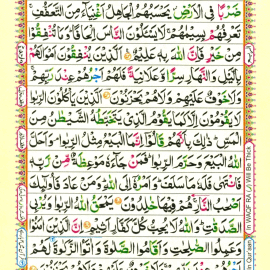 ضَرْبًا فِی الْاَرْضِ یَحْسَبُهُمُ الْجَاهِلُ اَغْنِیَآءَ مِنَ التَّعَفُّفِ
تَعْرِفُهُمْ بِسِیْمٰهُمْ لَا یَسْـَٔلُوْنَ النَّاسَ اِلْحَافًا وَمَا تُنْفِقُوْا
مِنْ خَیْرٍ فَاِنَّ اللّٰهَ بِهٖ عَلِیْمٌ اَلَّذِیْنَ یُنْفِقُوْنَ اَمْوَالَهُمْ
بِالَّیْلِ وَالنَّهَارِ سِرًّا وَّعَلَانِیَةً فَلَهُمْ اَجْرُهُمْ عِنْدَ رَبِّهِمْ
وَلَا خَوْفٌ عَلَیْهِمْ وَلَا هُمْ یَحْزَنُوْنَ اَلَّذِیْنَ یَاْكُلُوْنَ الرِّبٰوا
لَا یَقُوْمُوْنَ اِلَّا كَمَا یَقُوْمُ الَّذِیْ یَتَخَبَّطُهُ الشَّیْطٰنُ مِنَ
الْمَسِّ ذٰلِكَ بِاَنَّهُمْ قَالُوْۤا اِنَّمَا الْبَیْعُ مِثْلُ الرِّبٰوا وَاَحَلَّ
اللّٰهُ الْبَیْعَ وَحَرَّمَ الرِّبٰوا فَمَنْ جَآءَهٗ مَوْعِظَةٌ مِّنْ رَّبِّهٖ
فَانْتَهٰی فَلَهٗ مَا سَلَفَ وَاَمْرُهٗۤ اِلَی اللّٰهِ وَمَنْ عَادَ فَاُولٰٓئِكَ
اَصْحٰبُ النَّارِ هُمْ فِیْهَا خٰلِدُوْنَ یَمْحَقُ اللّٰهُ الرِّبٰوا وَیُرْبِی
الصَّدَقٰتِ وَاللّٰهُ لَا یُحِبُّ كُلَّ كَفَّارٍ اَثِیْمٍ اِنَّ الَّذِیْنَ اٰمَنُوْا
وَعَمِلُوا الصّٰلِحٰتِ وَاَقَامُوا الصَّلٰوةَ وَاٰتَوُا الزَّكٰوةَ لَهُمْ